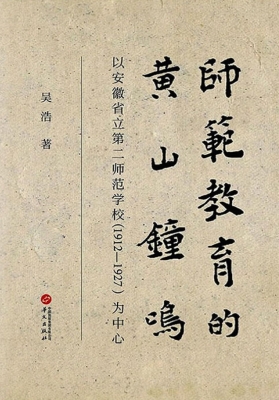 師範教育的
黄山鐘鳴
以安徽省立第二师范学校(1912—1927)为中心
吴浩 著
华文出版社